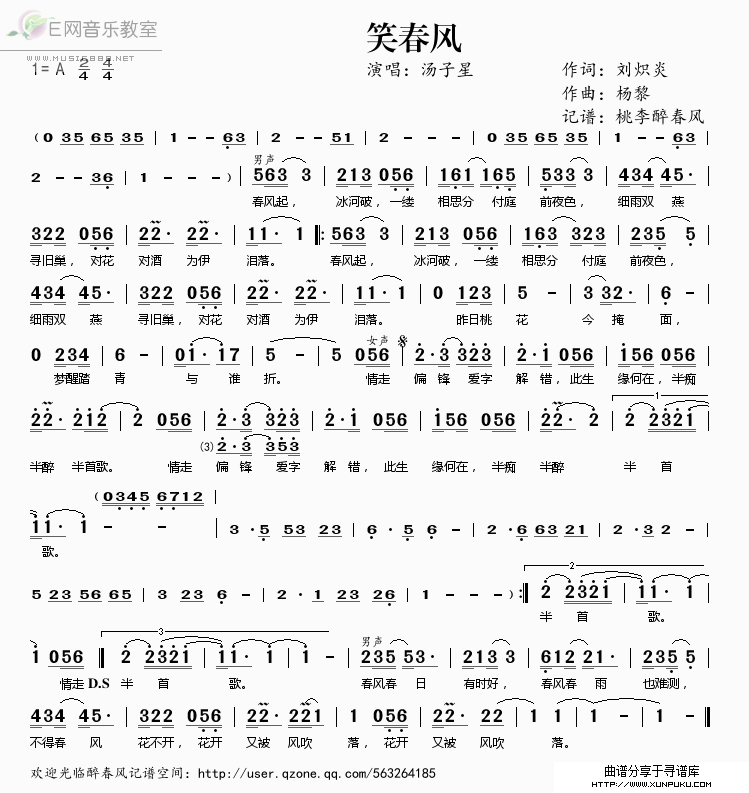 E网音乐教室
WWW.MUSIC8888.NET
笑春风
1=A 2/4 4/4
演唱：汤子星
作词：刘炽炎
作曲：杨黎
记谱：桃李醉春风
(0 35 65 35 | 1 - - 63 | 2 - - 51 | 2 - - - | 0 35 65 35 | 1 - - 63 |
男声
2 - - 36 | 1 - - - ) | 563 3 | 213 056 | 161 165 | 533 3 | 434 45· |
春风起， 冰河破，一缕 相思分 付庭 前夜色， 细雨双 燕
322 056 | 22· 22· | 11· 1 |: 563 3 | 213 056 | 163 323 | 235 5 |
寻旧巢，对花 对酒 为伊 泪落。 春风起， 冰河破，一缕 相思分 付庭 前夜色，
434 45· | 322 056 | 22· 22· | 11· 1 | 0 123 | 5 - | 3 32· | 6 - |
细雨双 燕 寻旧巢，对花 对酒 为伊 泪落。 昨日桃 花 今 掩 面，
女声
0 234 | 6 - | 01· 17 | 5 - | 5 056 | 2·3 323 | 2·1 056 | 156 056 |
梦醒踏 青 与 谁 折。 情走 偏 锋 爱字 解 错，此生 缘何在，半痴
1
22· 212 | 2 056 | 2·3 323 | 2·1 056 | 156 056 | 22· 2 | 2 2321 |
(3) 2·3 353
半醉 半首歌。 情走 偏 锋 爱字 解 错，此生 缘何在，半痴 半醉 半 首
(0345 6712 |
11· 1 - - | 3 ·5 53 23 | 6 ·5 6 - | 2 ·6 63 21 | 2 - - - |
歌。
2
5 23 56 65 | 3 23 6 - | 2 · 1 23 26 | 1 - - ) :| 2 2321 | 11· 1 |
半 首 歌。
3
男声
1 056 | 2 2321 | 11· 1 | 1 - | 235 53· | 213 3 | 612 21· | 235 5 |
情走 D.S 半 首 歌。 春风春 日 有时好， 春风春 雨 也难测，
434 45· | 322 056 | 22· 221 | 1 056 | 22· 22 | 1 1 | 1 - |
不得春 风 花不开，花开 又被 风吹 落，花开 又被 风吹 落。
欢迎光临醉春风记谱空间：http://user.qzone.qq.com/563264185
曲谱分享于寻谱库
HTTP://WWW.XUNPUKU.COM